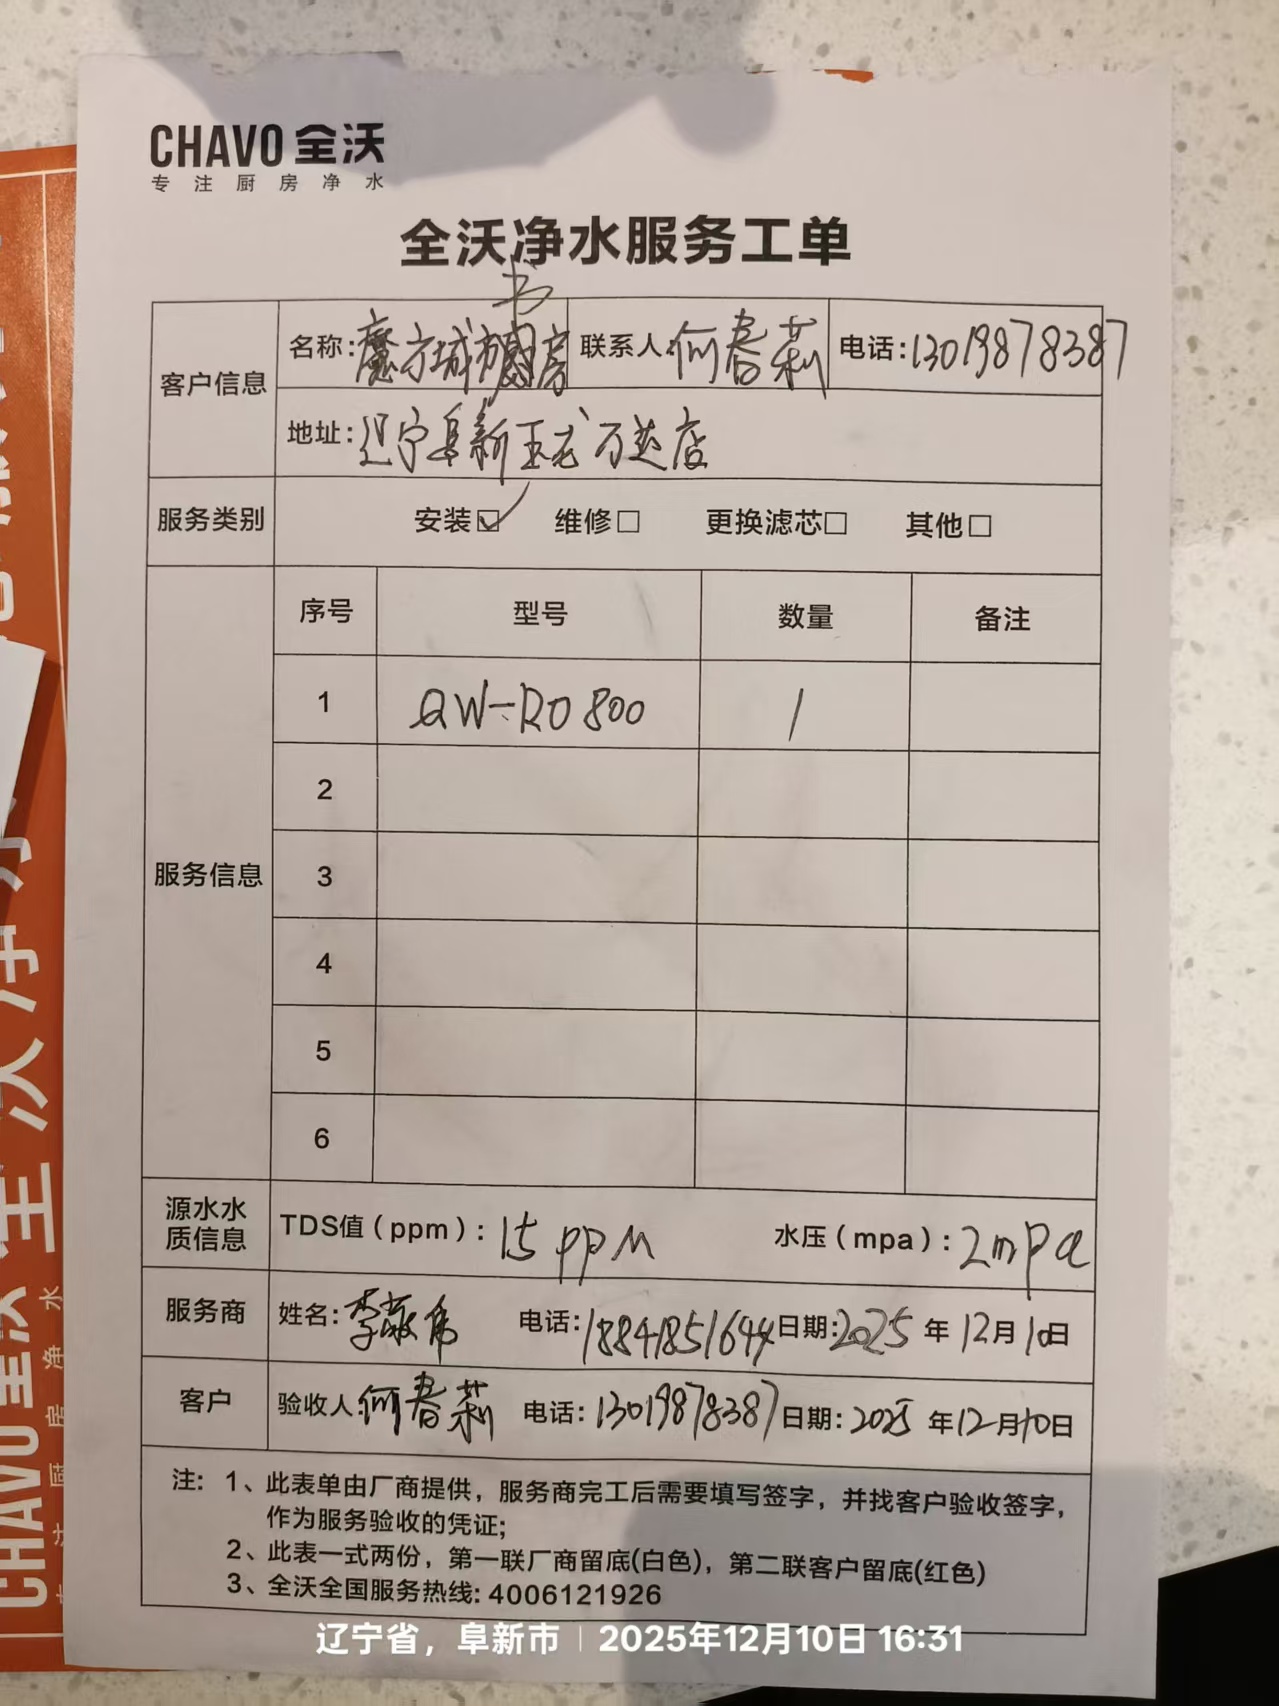 CHAVO 全沃
专注厨房净水
全沃净水服务工单
书
客户信息 名称:魔方城厨房 联系人:何春莉 电话:13019878387
地址:辽宁阜新玉龙万达店
服务类别 安装☑ 维修□ 更换滤芯□ 其他□
服务信息 序号 型号 数量 备注
1 QW-RO800 1
2
3
4
5
6
源水水质信息 TDS值(ppm):15ppm 水压(mpa):2mpa
服务商 姓名:李敬伟 电话:18841851644 日期:2025年12月10日
客户 验收人:何春莉 电话:13019878387 日期:2025年12月10日
注: 1、此表单由厂商提供,服务商完工后需要填写签字,并找客户验收签字,
作为服务验收的凭证;
2、此表一式两份,第一联厂商留底(白色),第二联客户留底(红色)
3、全沃全国服务热线: 4006121926
辽宁省,阜新市 | 2025年12月10日 16:31
CHAVO全沃